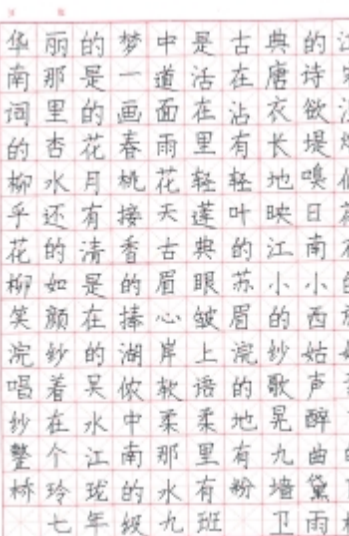 华丽的梦中是古典的江
南那是一道活在唐诗宋
词里的画面在沾衣欲
的杏花春雨里有长堤烟
柳水月桃花轻轻地嗅
乎还有接天莲叶映日荷
花的清香古典的江南
柳如是的眉眼苏小小的
笑颜在捧心皱眉的西
浣纱的湖岸上浣纱姑
唱着吴侬软语的歌声
纱在水中柔柔地晃醉
整个江南那里有九曲
桥玲珑的水有粉墙黛
七年级九班 卫雨